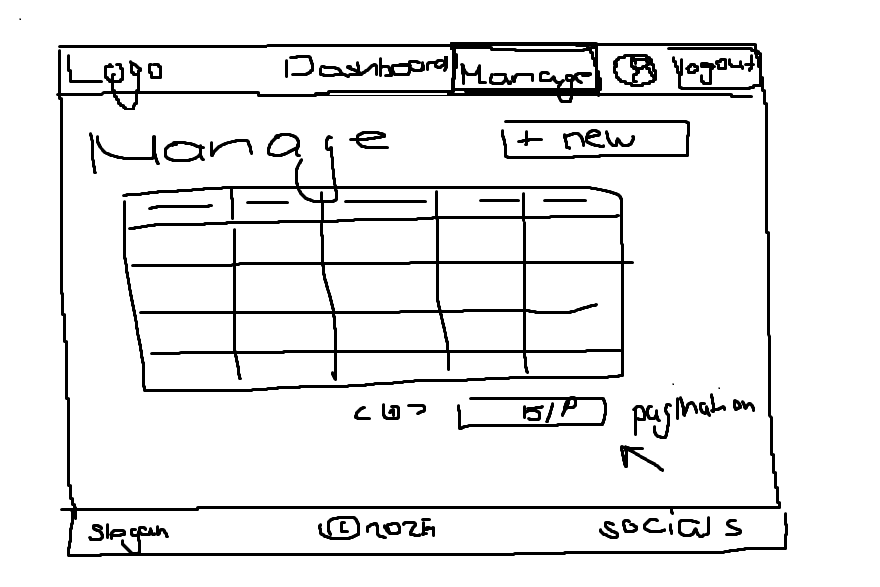 Logo Dashboard Manage logout
Manage + new
< 1 > 15/P pagination
Slogan © 2025 socials